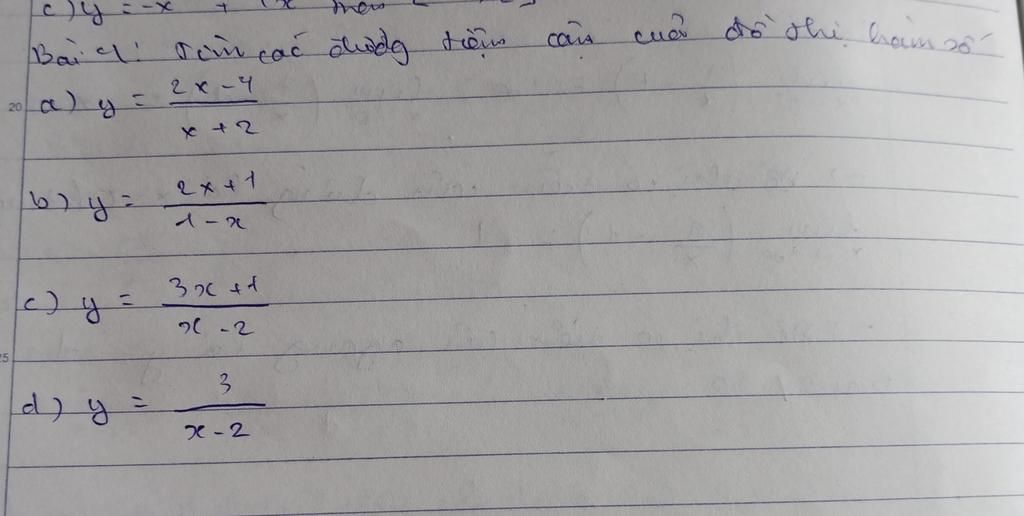 c) y = -x +
Bài 4: Tìm các đường tiệm cận của đồ thị hàm số
20
a) y = \frac{2x-4}{x+2}
b) y = \frac{2x+1}{1-x}
c) y = \frac{3x+1}{x-2}
d) y = \frac{3}{x-2}